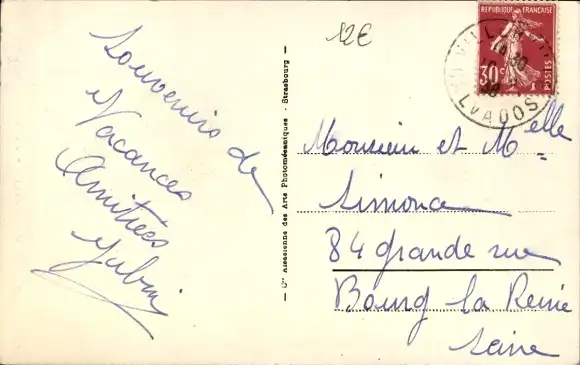 Souvenirs de
Vacances
Amitiés
12€
— Cie Alsacienne des Arts Photomécaniques - Strasbourg —
REPUBLIQUE FRANÇAISE
30c
POSTES
18 30
38
Monsieur et Melle
Simona
84 grande rue
Bourg la Reine
Seine